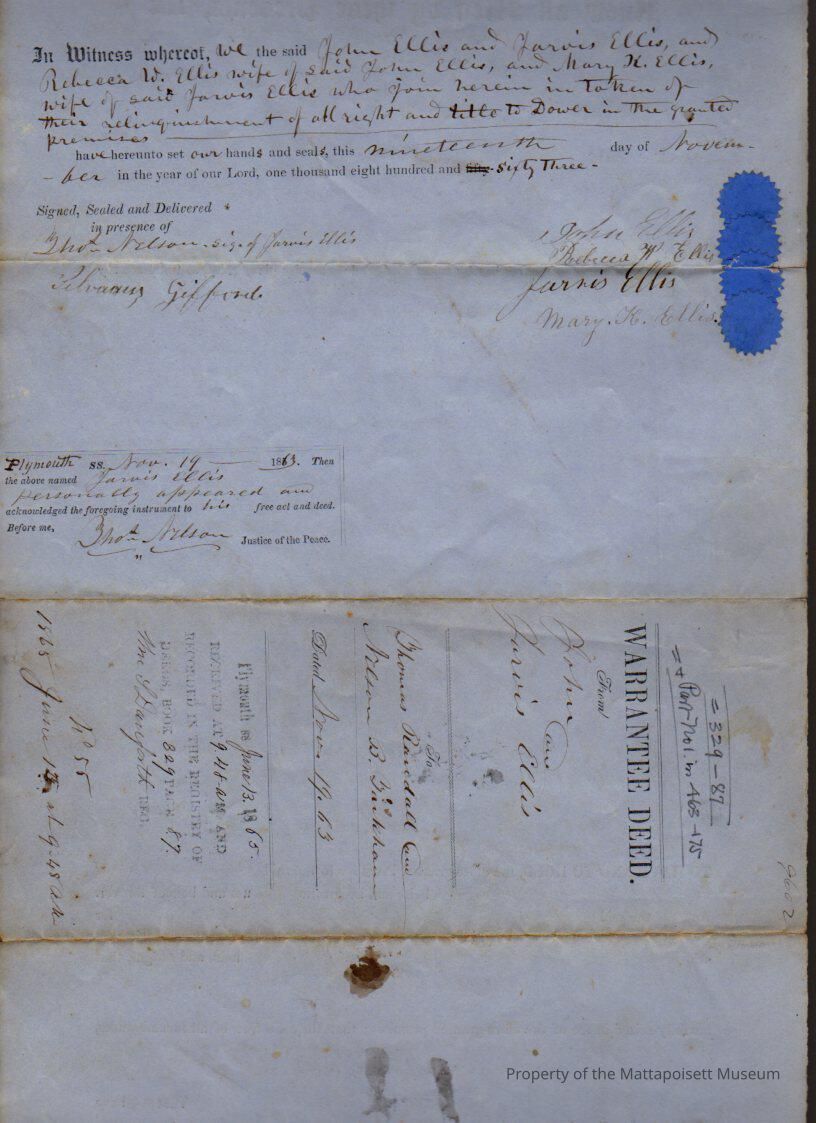 In Witness whereof, we the said John Ellis and Jarvis Ellis, and
Rebecca W. Ellis wife of said John Ellis, and Mary K. Ellis,
wife of said Jarvis Ellis who join herein in token of
their relinquishment of all right and title to Dower in the granted
premises
have hereunto set our hands and seals, this nineteenth day of Novem-
-ber in the year of our Lord, one thousand eight hundred and fifty sixty three -
Signed, Sealed and Delivered
in presence of
Thos. Nelson - sig. of Jarvis Ellis
Gifford
John Ellis
Rebecca W Ellis
Jarvis Ellis
Mary. K. Ellis.
Plymouth ss. Nov. 19 1863. Then
the above named Jarvis Ellis
personally appeared and
acknowledged the foregoing instrument to his free act and deed.
Before me,
Thos. Nelson Justice of the Peace.
= 329-87
Par. No 1. in 463-175
WARRANTEE DEED.
From
John and
Jarvis Ellis
To
Thomas Randall and
Nelson B. Pinkham
Dated Nov. 19. 63
Plymouth ss June 13. 1865.
RECEIVED AT 9 48 AM AND
RECORDED IN THE REGISTRY OF
DEEDS, BOOK 329 PAGE 87.
Wm S Danforth REG.
No 55
1865 June 13, at 9.48 AM
9602
Property of the Mattapoisett Museum